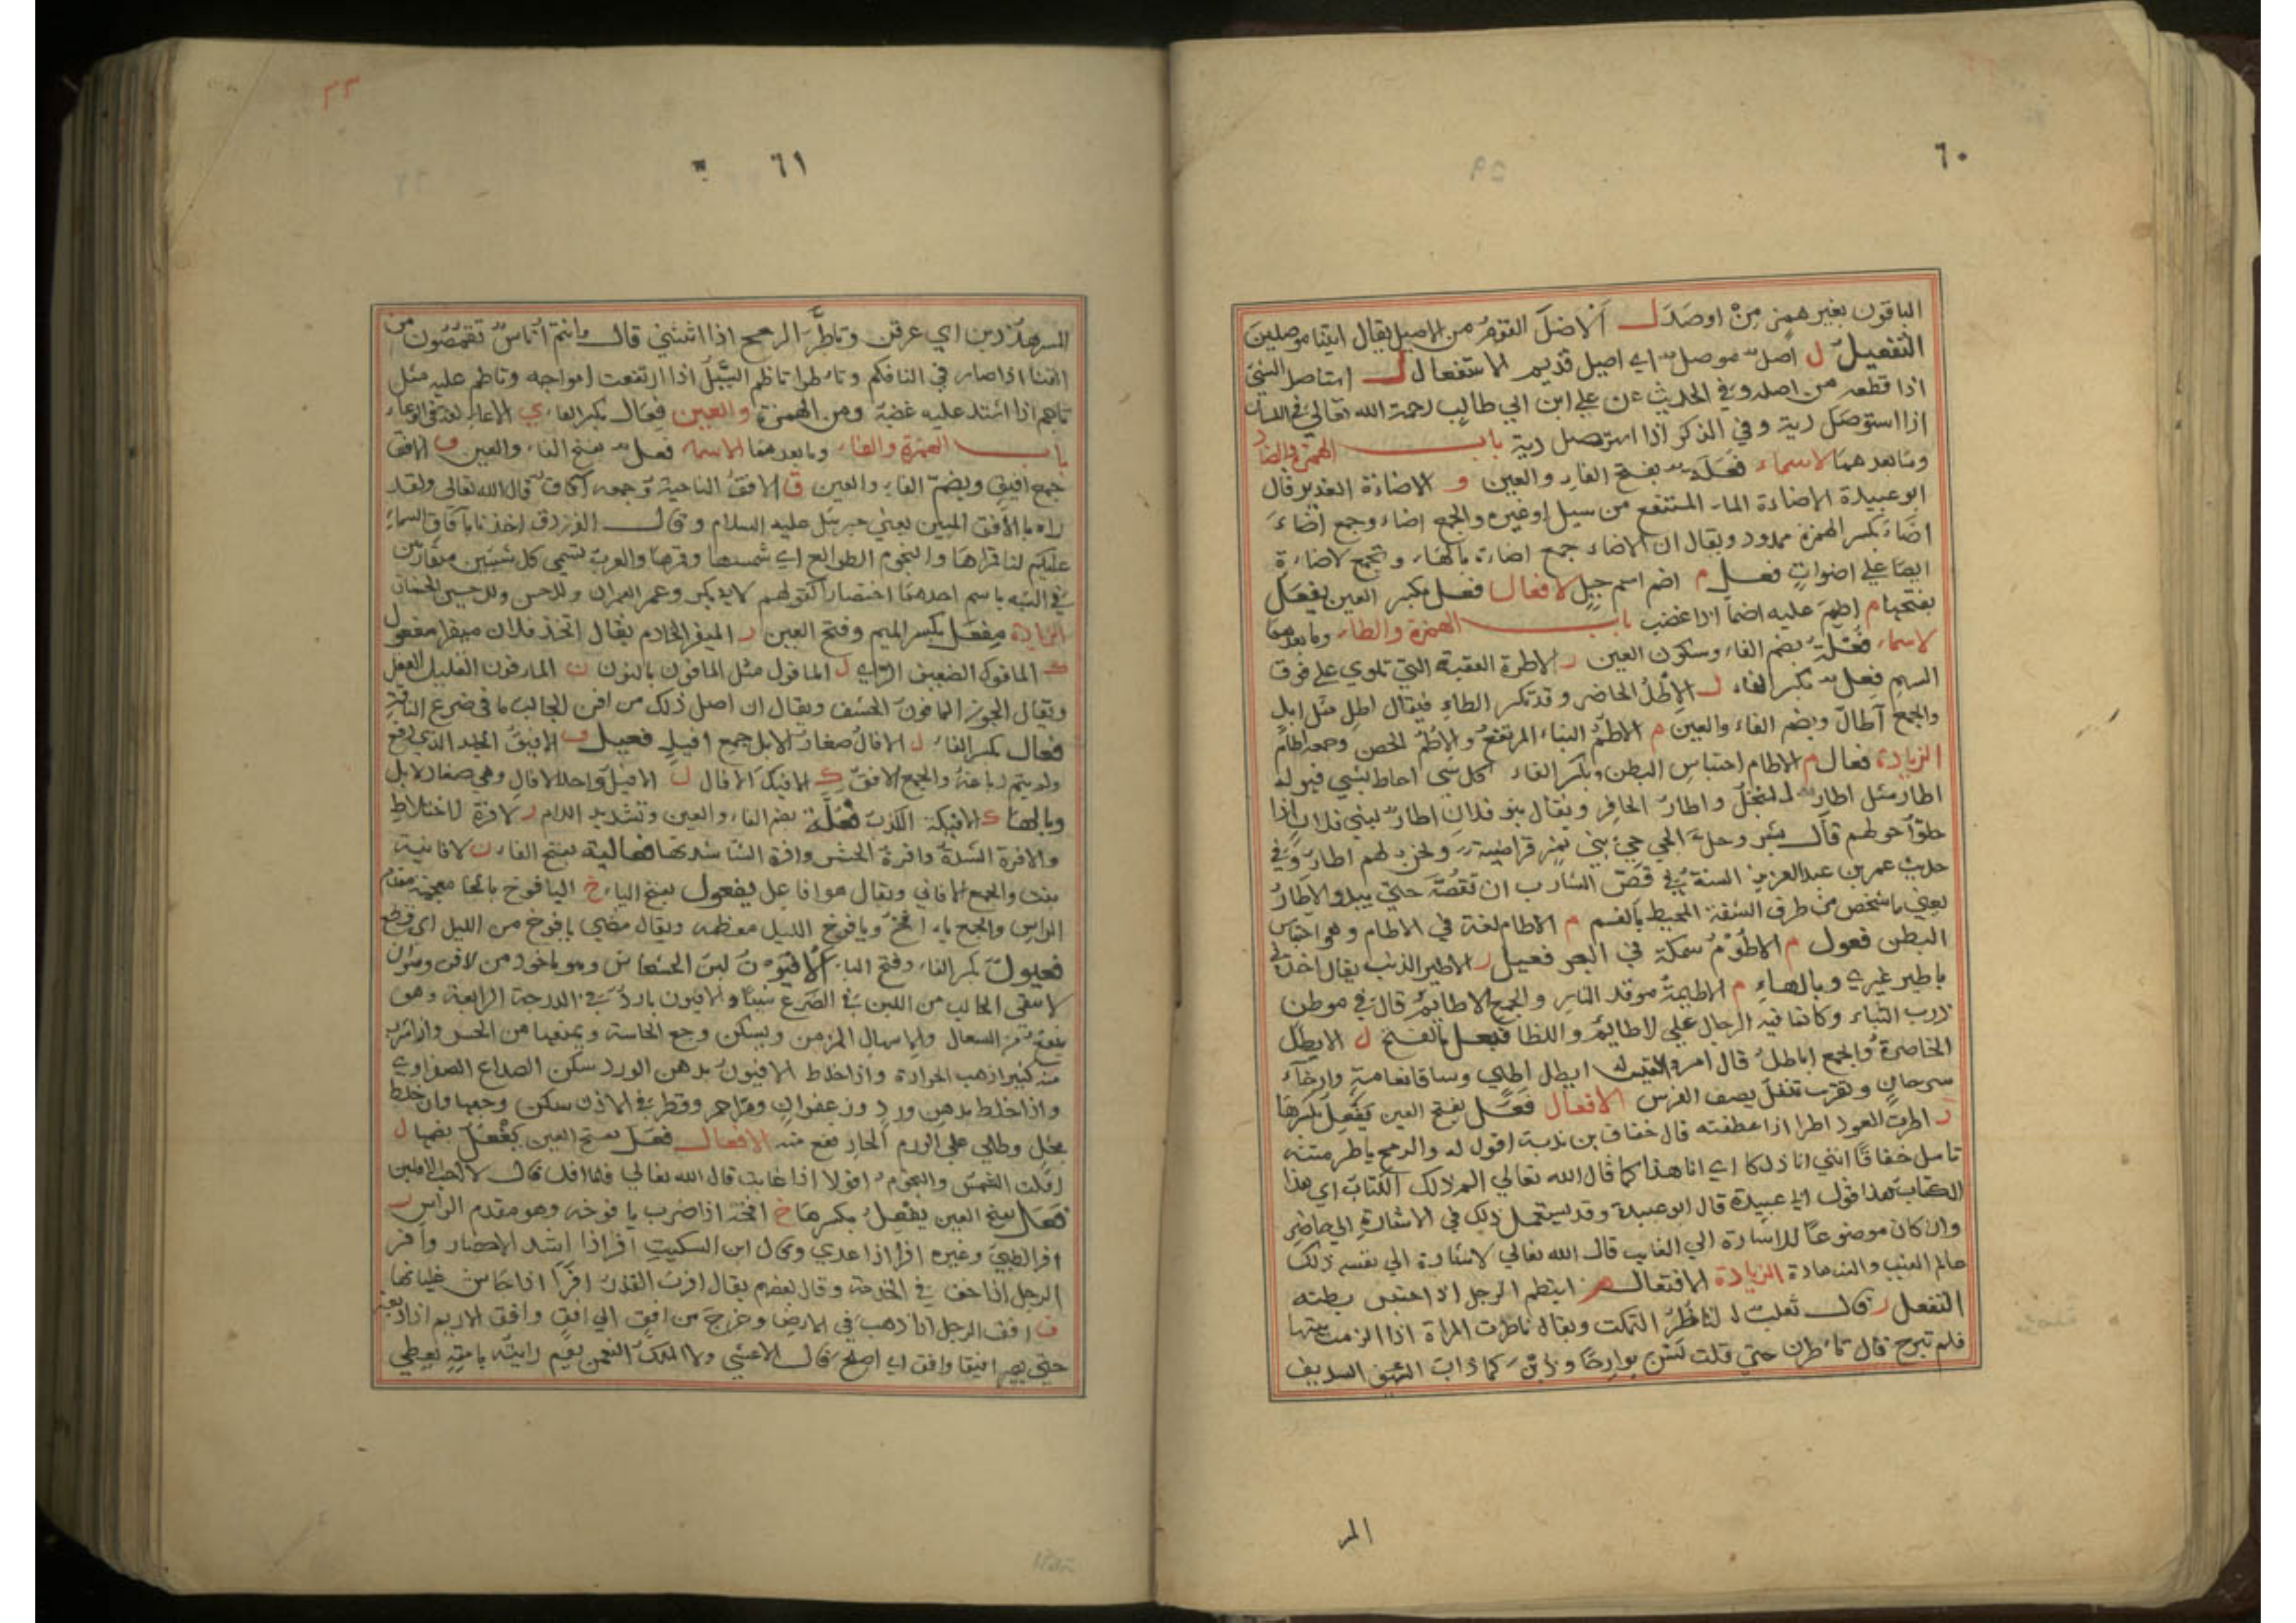 ٦٠
الباقون بغير همز مِنْ اوصَدَ ل الاصَل القوم من الاصيل يقال اتينا موصلين
التفعيل ل اصل موصل اي اصيل قديم الاستفعال ل استاصل الشيَ
اذا قطعه من اصله وفي الحديث عن علي ابن ابي طالب رحمة الله تعالى في اللسان
اذا استوصل دية وفي الذكر اذا استوصل دية باب الهمزة والضاد
وما بعدهما الاسماء فَعَلَة بفتح الفاء والعين و الاضاءة الغدير قال
ابو عبيدة الاضاءة الماء المستنقع من سيل او غيره والجمع اضاء وجمع اضاءَ
اضَاء بكسر الهمزة ممدود ويقال ان الاضاء جمع اضاءة بالهاء وتجمع الاضاءة
ايضا على اضواتٍ فعل م اضم اسم جبل الافعال فعل بكسر العين يفعَل
بفتحها م اضِمَ عليه اضما اذا غضب باب الهمزة والطاء وما بعدهما
الاسماء فُعْلة بضم الفاء وسكون العين ر الاطرة العقبة التي تلوي على فوق
السهم فِعل بكسر الفاء ل الإطْلُ الخاصر وقد تكسر الطاء فيقال اطِل مثل ابِلٍ
والجمع آطالَ وبضم الفاء والعين م الاطُمُ البناء المرتفع والاُطُم الحصن وجمعه اطام
الزيادة فعال م الاطام احتباس البطن وبكسر الفاء كل شي احاط بشي فهو له
اطار مثل اطار المنخل واطار الحافر ويقال بنو فلان اطار لبني فلان اذا
حلوا حولهم قال بشر وحلَّ الحي حيُ بني نمير قراضية ونحن لهم اطار وفي
حديث عمر بن عبد العزيز السنة في قصّ الشارب ان تقصَّهَ حتى يبدو الاطَارُ
يعني ما شخص من طرف الشفة المحيط بالفم م الاطام لغة في الاطام وهو احتباس
البطن فعول م الاطُوْمُ سمكة في البحر فعيل ر الاطير الذنب يقال اخذني
باطير غيري وبالهاءِ م الاطيمَةُ موقد النار والجمع الاطايم قال في موطن
ذرب الشباء وكانما فيه الرجال على الاطايم واللظا فيعل بالفتح ل الايطَل
الخاصرةُ والجمع اياطلُ قال امرو القيس له ايطل اظبي وساقا نعامةٍ وارخآءُ
سرحانٍ وتقرب تتفل يصف الفرس الافعال فَعَل بفتح العين يَفْعِل بكسرها
ر اطرت العود اطرا اذا عطفته قال خفاف بن ندبة اقول له والرمح ياطر متنه
تامل خفافًا انني انا ذلكا اي انا هذا كما قال الله تعالى الم ذلك الكتاب اي هذا
الكتاب هذا قول ابي عبيدة قال ابو عبيدة وقد يستعمل ذلك في الاشارة الى حاضر
وان كان موضوعًا للاشارة الى الغايب قال الله تعالى لاشارة الى نفسه ذلك
عالم الغيب والشهادة الزيادة الافتعال م ايتطم الرجل اذا احتبس بطنه
التفعل ر قال ثعلب التاطُّرُ التمكث ويقال تاطرت المراة اذا الزمت بيتها
فلم تبرح قال تاطرن حتى قلت لَسْنَ بوارحًا وذبن كما ذاب السديف
المر
٣٣
٦١
المسرهد ذبن اي عرقن وتاطَّر الرمح اذا انثنى قال وانتم اناسٌ تقمصُون من
القنا اذا صار في اكنافكم وتاطرا تاطم السَّيلُ اذا ارتفعت امواجه وتاطم عليه مثل
تاجم اذا اشتد عليه غضبه ومن الهمزة والعين فِعال بكسر الفاء ي الاعاء لغة في الوعاء
باب الهمزة والفاء وما بعدهما الاسماء فعل بفتح الفاء والعين ق الافق
جمع افيق وبضم الفاء والعين ق الافق الناحية وجمعه آفاق قال الله تعالى ولقد
راه بالافق المبين يعني جبريل عليه السلام وقال الفرزدق اخذنا بآفاق السماء
عليكم لنا قمراها والنجوم الطوالع اي شمسها وقمرها والعرب تسمي كل شيئين متقاربين
في الشبه باسم احدهما اختصارا كقولهم لابي بكر وعمر العمران وللحسن وللحسين الحسنان
الزيادة مِفعَل بكسر الميم وفتح العين ر الميفر الخادم يقال اتخذ فلان ميفرا مفعول
ك المافوك الضعيف الراي ل المافول مثل المافون بالنون ن المافون القليل العقل
ويقال الجوز المافون الحشف ويقال ان اصل ذلك من افن الحالب ما في ضرع الناقة
فعال بكسر الفاء ل الافال صغار الابل جمع افيل فعيل ق الافيق الجلد الذي دبغ
ولم يتم دباغه والجمع الافق ك الافيك الافال ل الافيل واحد الافال وهي صغار الابل
وبالهاء ك الافيكة الكذب فُعُلّة بضم الفاء والعين وتشديد اللام ر الافرة الاختلاط
والافرة الشدة وافرة الحر وافرة الشتا شدتها فعالية بفتح الفاء ن الافانية
بنت والجمع الافاني ويقال هو افاعل يفعول بفتح الياء خ اليافوخ بالخا معجمة مقدم
الراس والجمع يافخ ويافوخ الليل معظمه ويقال مضى يافوخ من الليل اي قطع
فعيول بكسر الفاء وفتح الياء ن الافيون لبن الخشخاش وهو ماخوذ من الافن وهو ان
لا يبقى الحالب من اللبن في الضرع شيئًا والافيون بارد في الدرجة الرابعة وهو
ينفع من السعال والاسهال المزمن ويسكن وجع الحاسة ويمنعها من الحس واذا شرب
منه كثير اذهب الحرارة واذا خلط الافيون بدهن الورد سكن الصداع الصفراوي
واذا خلط بدهن ورد وزعفران ومرّ احمر وقطر في الاذن سكن وجعها وان خلط
بخل وطلي على الورم الحار نفع منه الافعال فعَل بفتح العين يفعُل بضمها ل
افلت الشمس والنجوم افولا اذا غابت قال الله تعالى فلما افل قال لا احب الافلين
فَعَل بفتح العين يفعِل بكسرها خ افخته اذا ضرب يافوخه وهو مقدم الراس ر
افر الظبي وغيره افرا اذا عدى وقال ابن السكيت افرا اذا اشد الاحضار وافر
الرجل اذا خف في الخدمة وقال بعضهم يقال افرت القدر افرًا اذا جاش غليانها
ق افق الرجل اذا ذهب في الارض وخرج من افق الى افق وافق الاديم اذا دبغه
حتى يصير افيقا وافق اي اصلح قال الاعشى ولا الملك النعمن يوم رايته بامته يعطي